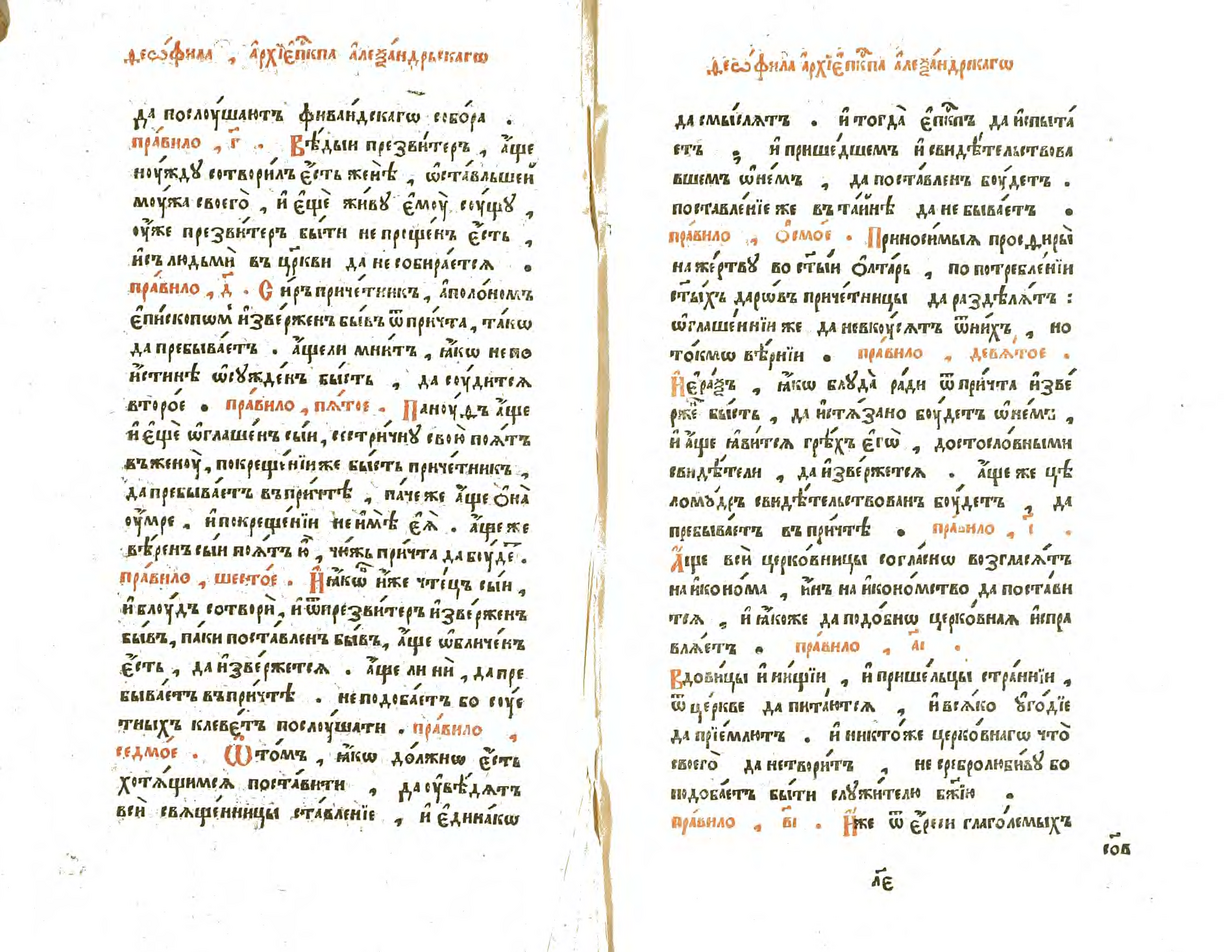 Ѳеѡ́фила , а҆рхїе҆пⷭ҇кпа а҆леѯа́ндрьскагѡ
да послꙋ́шаютъ ѳиваи́дскагѡ собо́ра .
пра́вило , г҃ . Вѣ́дыи презви́теръ , а҆́ще
нꙋ́ждꙋ сотвори́лъ є҆́сть женѣ̀ , ѡ҆ста́вльшей
мꙋ́жа своего̀ , и҆ є҆щѐ жи́вꙋ є҆мꙋ̀ сꙋ́щꙋ ,
ᲂу҆́же презви́теръ бы́ти не проще́нъ є҆́сть ,
и҆съ людьмѝ въ цр҃кви да не собира́ется .
пра́вило , д҃ . Си́ръ приче́тникъ , а҆поло́номъ
є҆пи́скопѡмъ и҆зве́рженъ бы́въ ѿ при́чта , та́кѡ
да пребыва́етъ . а҆́щели мни́тъ , ꙗ҆́кѡ не по
и҆́стинѣ ѡ҆сꙋжде́нъ бы́сть , да сꙋ́дится
второ́е . пра́вило , пѧ́тое . Панꙋ́ѳъ а҆́ще
и҆ є҆щѐ ѡ҆глаше́нъ сы́и , сестри́чнꙋ свою̀ поѧ́тъ
въ женꙋ̀ , по креще́нїи же бы́сть приче́тникъ ,
да пребыва́етъ въ при́чтѣ , па́че же а҆́ще ѻ҆на̀
ᲂу҆́мре , и҆ по креще́нїи не и҆мѣ̀ є҆ѧ̀ . а҆́ще же
вѣ́ренъ сы́и поѧ́тъ ю҆̀ , чю́жь при́чта да бꙋ́деⷮ .
пра́вило , шесто́е . И҆ ꙗ҆́кѡв и҆́же чте́цъ сы́и ,
и҆ блꙋ́дъ сотворѝ , и҆ ѿ презви́теръ и҆зве́рженъ
бы́въ , па́ки поста́вленъ бы́въ , а҆́ще ѡ҆бличе́нъ
є҆́сть , да и҆зве́ржется . а҆́ще ли нѝ , да пре
быва́етъ въ при́чтѣ . не подоба́етъ бо сꙋ́е
тныхъ клеве́тъ послꙋ́шати . пра́вило ,
седмо́е . Ѿ то́мъ , ꙗ҆́кѡ до́лжнѡ є҆́сть
хотѧ́щимсѧ поста́вити , да ᲂу҆вѣ́дѧтъ
всѝ свѧще́нницы ставле́нїе , и҆ є҆ди́накѡ
Ѳеѡ́фила а҆рхїе҆пⷭ҇кпа а҆леѯа́ндрскагѡ
да смы́слѧтъ . и҆ тогда̀ є҆пⷭ҇кпъ да и҆спыта́
етъ ; и҆ прише́дшемъ и҆ свидѣ́тельствова
вшемъ ѡ҆не́мъ , да поста́вленъ бꙋ́детъ .
поставле́нїе же въ та́инѣ да не быва́етъ .
пра́вило , ѻ҆смо́е . Приноси́мыѧ просѳиры̀
на же́ртвꙋ во ст҃ы́и ѻ҆лта́рь , по потребле́нїи
ст҃ы́хъ дарѡ́въ приче́тницы да раздѣлѧ́тъ :
ѡ҆глаше́ннїи же да невкꙋ́сѧтъ ѿ ни́хъ , но
то́кмѡ вѣ́рнїи . пра́вило , девѧ́тое .
И҆є҆ра́ѯъ , ꙗ҆́кѡ блꙋда̀ ра́ди ѿ при́чта и҆зве́
рже бы́сть , да и҆стѧ́зано бꙋ́детъ ѡ҆не́мъ ,
и҆ а҆́ще ꙗ҆ви́тсѧ грѣ́хъ є҆гѡ̀ , достосло́вными
свидѣ́тели , да и҆зве́ржетсѧ . а҆́ще же цѣ
ломꙋ́дръ свидѣ́тельствованъ бꙋ́детъ , да
пребыва́етъ въ при́чтѣ . пра́вило , і҃ .
А҆́ще всѝ церко́вницы согла́снѡ возгласѧ́тъ
на и҆коно́ма , и҆́нъ на и҆коно́мство да поста́ви
тсѧ , и҆ ꙗ҆́коже да подо́бнѡ церко́внаѧ и҆спра
влѧ́етъ . пра́вило , а҃і .
Вдови́цы и҆ ни́щїи , и҆ прише́льцы стра́ннїи ,
ѿ це́ркве да пита́ютсѧ , и҆ всѧ́ко ᲂу҆го́дїе
да прїе́млютъ . и҆ никто́же церко́внагѡ что̀
своего̀ да нетвори́тъ , не сребролюби́вꙋ бо
подоба́етъ бы́ти слꙋжи́телю бж҃їю .
пра́вило , в҃і . И҆́же ѿ є҆́реси глаго́лемыхъ
соⷡ
л҃є